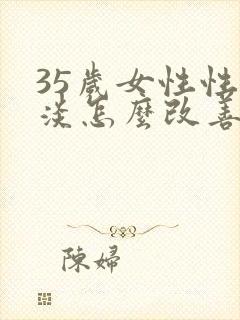 35歲女性性
淡怎麼改善
陳婦